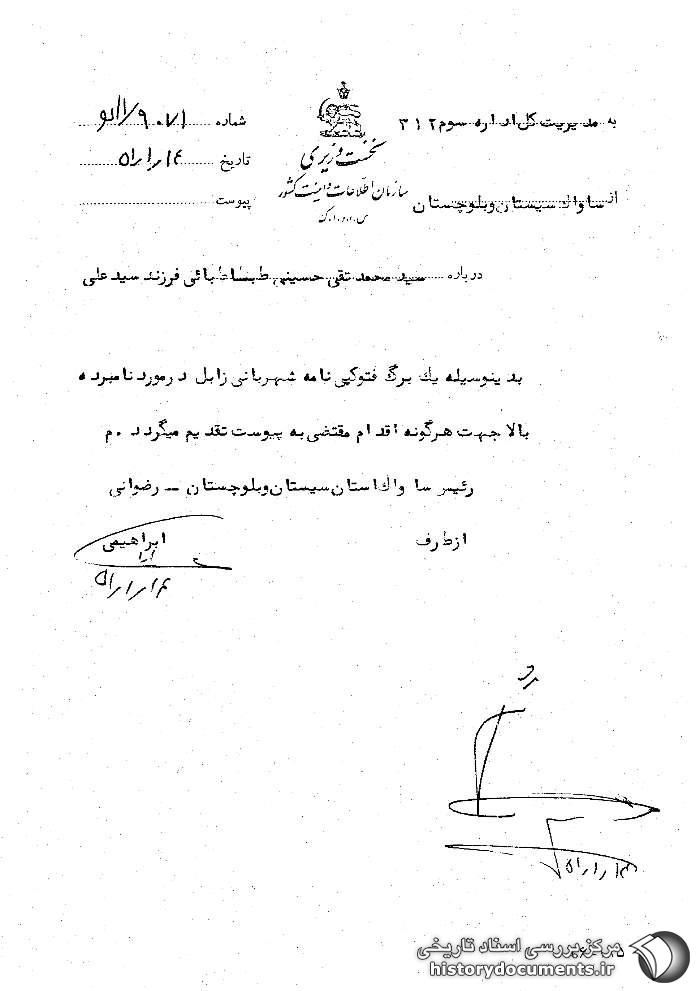 به مدیریت کل اداره سوم ۳۱۲
شماره ۹۰۷۱/
نخست وزیری
تاریخ
سازمان اطلاعات و امنیت کشور
س.ا.و.ا.ک
از ساواک سیستان و بلوچستان
پیوست
درباره سید محمد تقی حسینی طباطبائی فرزند سید علی
بدینوسیله یک برگ فتوکپی نامه شهربانی زابل در مورد نامبرده
بالا جهت هرگونه اقدام مقتضی به پیوست تقدیم میگردد . م
رئیس ساواک استان سیستان و بلوچستان – رضوانی
از طرف ابراهیمی
مرکز بررسی اسناد تاریخی
historydocuments.ir